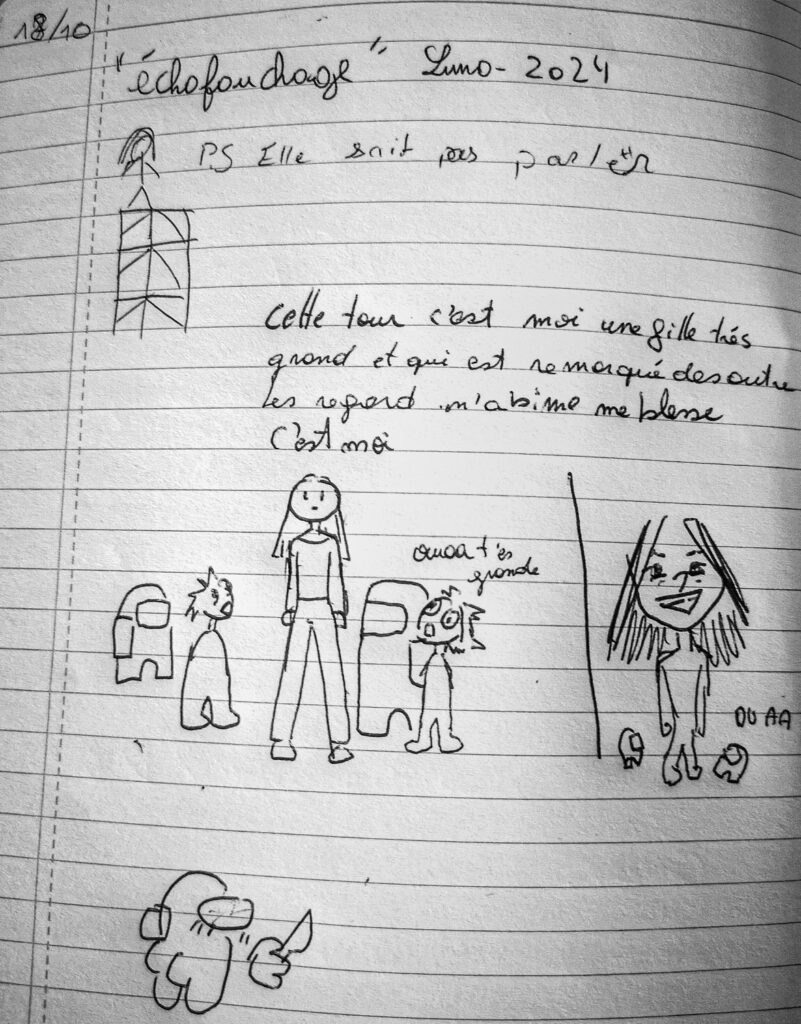 18/10
"échofouchage" Luno - 2024
PS Elle sait pas parler
cette tour c'est moi une fille trés
grand et qui est remarqué des outre
les regard m'abime me blesse
C'est moi
ouaa t'es
grande
OUAA